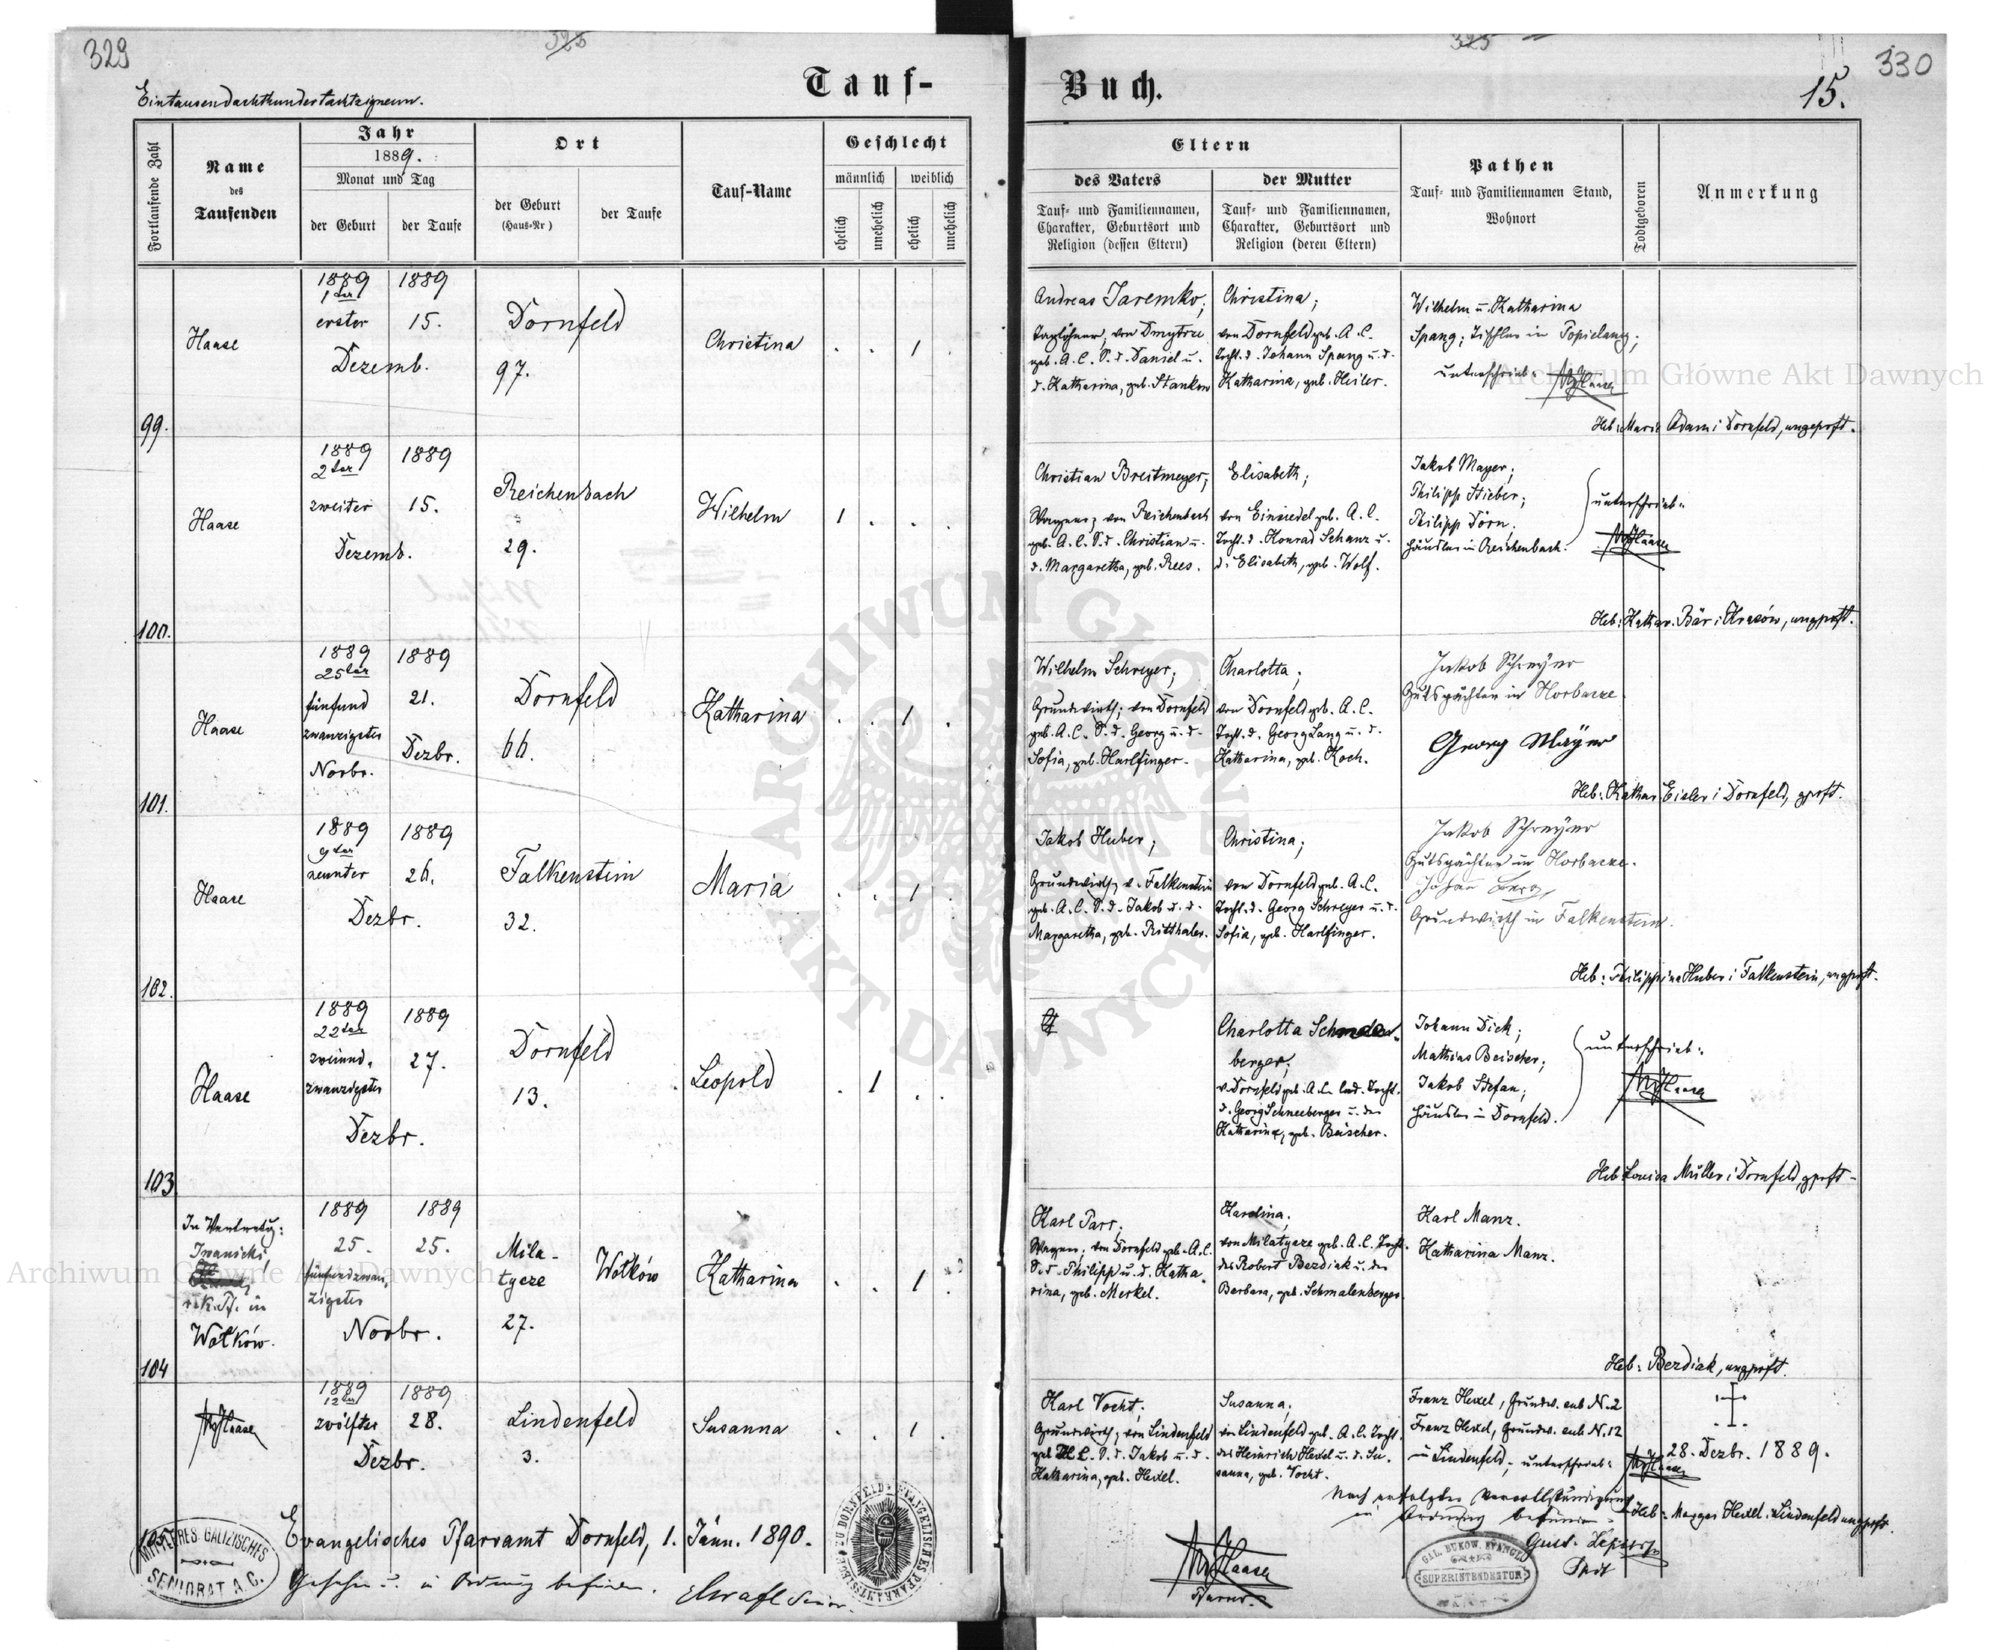 329
325
Tauf-
Eintausendachthundertachtzigneun.
Fortlaufende Zahl
Name
des
Taufenden
Jahr
1889.
Monat und Tag
der Geburt
der Taufe
Ort
der Geburt
(Haus-Nr)
der Taufe
Tauf-Name
Geschlecht
männlich
weiblich
ehelich
unehelich
ehelich
unehelich
99.
Haase
1889
1ter
erster
Dezemb.
1889
15.
Dornfeld
97.
Christina
. . 1 .
100.
Haase
1889
2ter
zweiter
Dezemb.
1889
15.
Reichenbach
29.
Wilhelm
1 . . .
101.
Haase
1889
25ter
fünfund
zwanzigster
Novbr.
1889
21.
Dezbr.
Dornfeld
66.
Katharina
. . 1 .
102.
Haase
1889
9ter
neunter
Dezbr.
1889
26.
Falkenstein
32.
Maria
. . 1 .
103
Haase
1889
22ter
zweiund-
zwanzigster
Dezbr.
1889
27.
Dornfeld
13.
Leopold
. 1 . .
104
In Vertretg:
Iwanicki,
r. k. Pf. in
Wołków.
1889
25.
fünfundzwan-
zigster
Novbr.
1889
25.
Mila-
tycze
27.
Wołków
Katharina
. . 1 .
105.
Haase
1889
12ter
zwölfter
Dezbr.
1889
28.
Lindenfeld
3.
Susanna
. . 1 .
Evangelisches Pfarramt Dornfeld, 1. Jänn. 1890.
Gesehen u. in Ordnung befunden.
MITTLERES GALIZISCHES
SENIORAT A.C.
EVANGELISCHES PFARRAMTSSIEGEL ZU DORNFELD
330
325
Buch.
15.
Eltern
des Vaters
Tauf- und Familiennamen,
Charakter, Geburtsort und
Religion (dessen Eltern)
der Mutter
Tauf- und Familiennamen,
Charakter, Geburtsort und
Religion (deren Eltern)
Pathen
Tauf- und Familiennamen Stand,
Wohnort
Todtgeboren
Anmerkung
Andreas Jaremko;
Taglöhner, von Dmytrze
geb. A. C. S. d. Daniel u.
d. Katharina, geb. Stankow
Christina;
von Dornfeld geb. A. C.
Tocht. d. Johann Spang u. d.
Katharina, geb. Heiler.
Wilhelm u. Katharina
Spang; Tischler in Popielany;
unterschrieb: Haase
Heb: Maria Adam i Dornfeld, ungeprft.
Christian Breitmeyer;
Wagner; von Reichenbach
geb. A. C. S. d. Christian u.
d. Margaretha, geb. Rees.
Elisabeth;
von Einsiedel geb. A. C.
Tocht. d. Konrad Schanz u.
d. Elisabeth, geb. Wolf.
Jakob Mayer;
Philipp Stieber;
Philipp Dörn;
Häusler in Reichenbach.
unterschrieb:
Haase
Heb: Kathar. Bär i Krasów, ungprft.
Wilhelm Schreyer;
Grundwirth; von Dornfeld
geb. A. C. S. d. Georg u. d.
Sofia, geb. Harlfinger.
Charlotta;
von Dornfeld geb. A. C.
Tocht. d. Georg Lang u. d.
Katharina, geb. Koch.
Jakob Schreyer
Gutspächter in Horbacze.
Georg Mayer
Heb: Kathar Eisler i Dornfeld, gprft.
Jakob Huber;
Grundwirth, v. Falkenstein
geb. A. C. S. d. Jakob u. d.
Margaretha, geb. Ritthaler.
Christina;
von Dornfeld geb. A. C.
Tocht. d. Georg Schreyer u. d.
Sofia, geb. Harlfinger.
Jakob Schreyer
Gutspächter in Horbacze.
Grundwirth in Falkenstein.
Heb: Philippina Huber i Falkenstein, ungprft.
Charlotta
berger;
v. Dornfeld geb. A. C. led. Tocht.
d. Georg Schneeberger u. der
Katharina, geb. Beischer.
Johann Dick;
Mathias Beischer;
Jakob Stefan;
Häusler in Dornfeld.
unterschrieb:
Haase
Heb: Louisa Müller i Dornfeld, gprft.
Karl Parr;
Wagner; von Dornfeld geb. A. C.
S. d. Philipp u. d. Katha-
rina, geb. Merkel.
Karolina;
von Milatycze geb. A. C. Tocht.
des Robert Bezdiak u. der
Barbara, geb. Schmalenberger
Karl Manz.
Katharina Manz.
Heb: Bezdiak, ungprft.
Karl Vocht;
Grundwirth; von Lindenfeld
geb. S. d. Jakob u. d.
Katharina, geb. Hexel.
Susanna;
von Lindenfeld geb. A. C. Tocht.
des Heinrich Hexel u. d. Su-
sanna, geb. Vocht.
Franz Hexel, Grundw. sub N. 2
Franz Hexel, Grundw. sub N. 12
in Lindenfeld; unterschrieb:
Haase
28. Dezbr. 1889.
Heb: Margar Hexel i Lindenfeld ungprft.
Nach erfolgter Vervollständigung
in Ordnung befunden
Haase
Pfarrer.
GAL. BUKOW. EVANGEL.
SUPERINTENDENTUR
Archiwum Główne Akt Dawnych
Archiwum Główne Akt Dawnych
ARCHIWUM GŁÓWNE AKT DAWNYCH